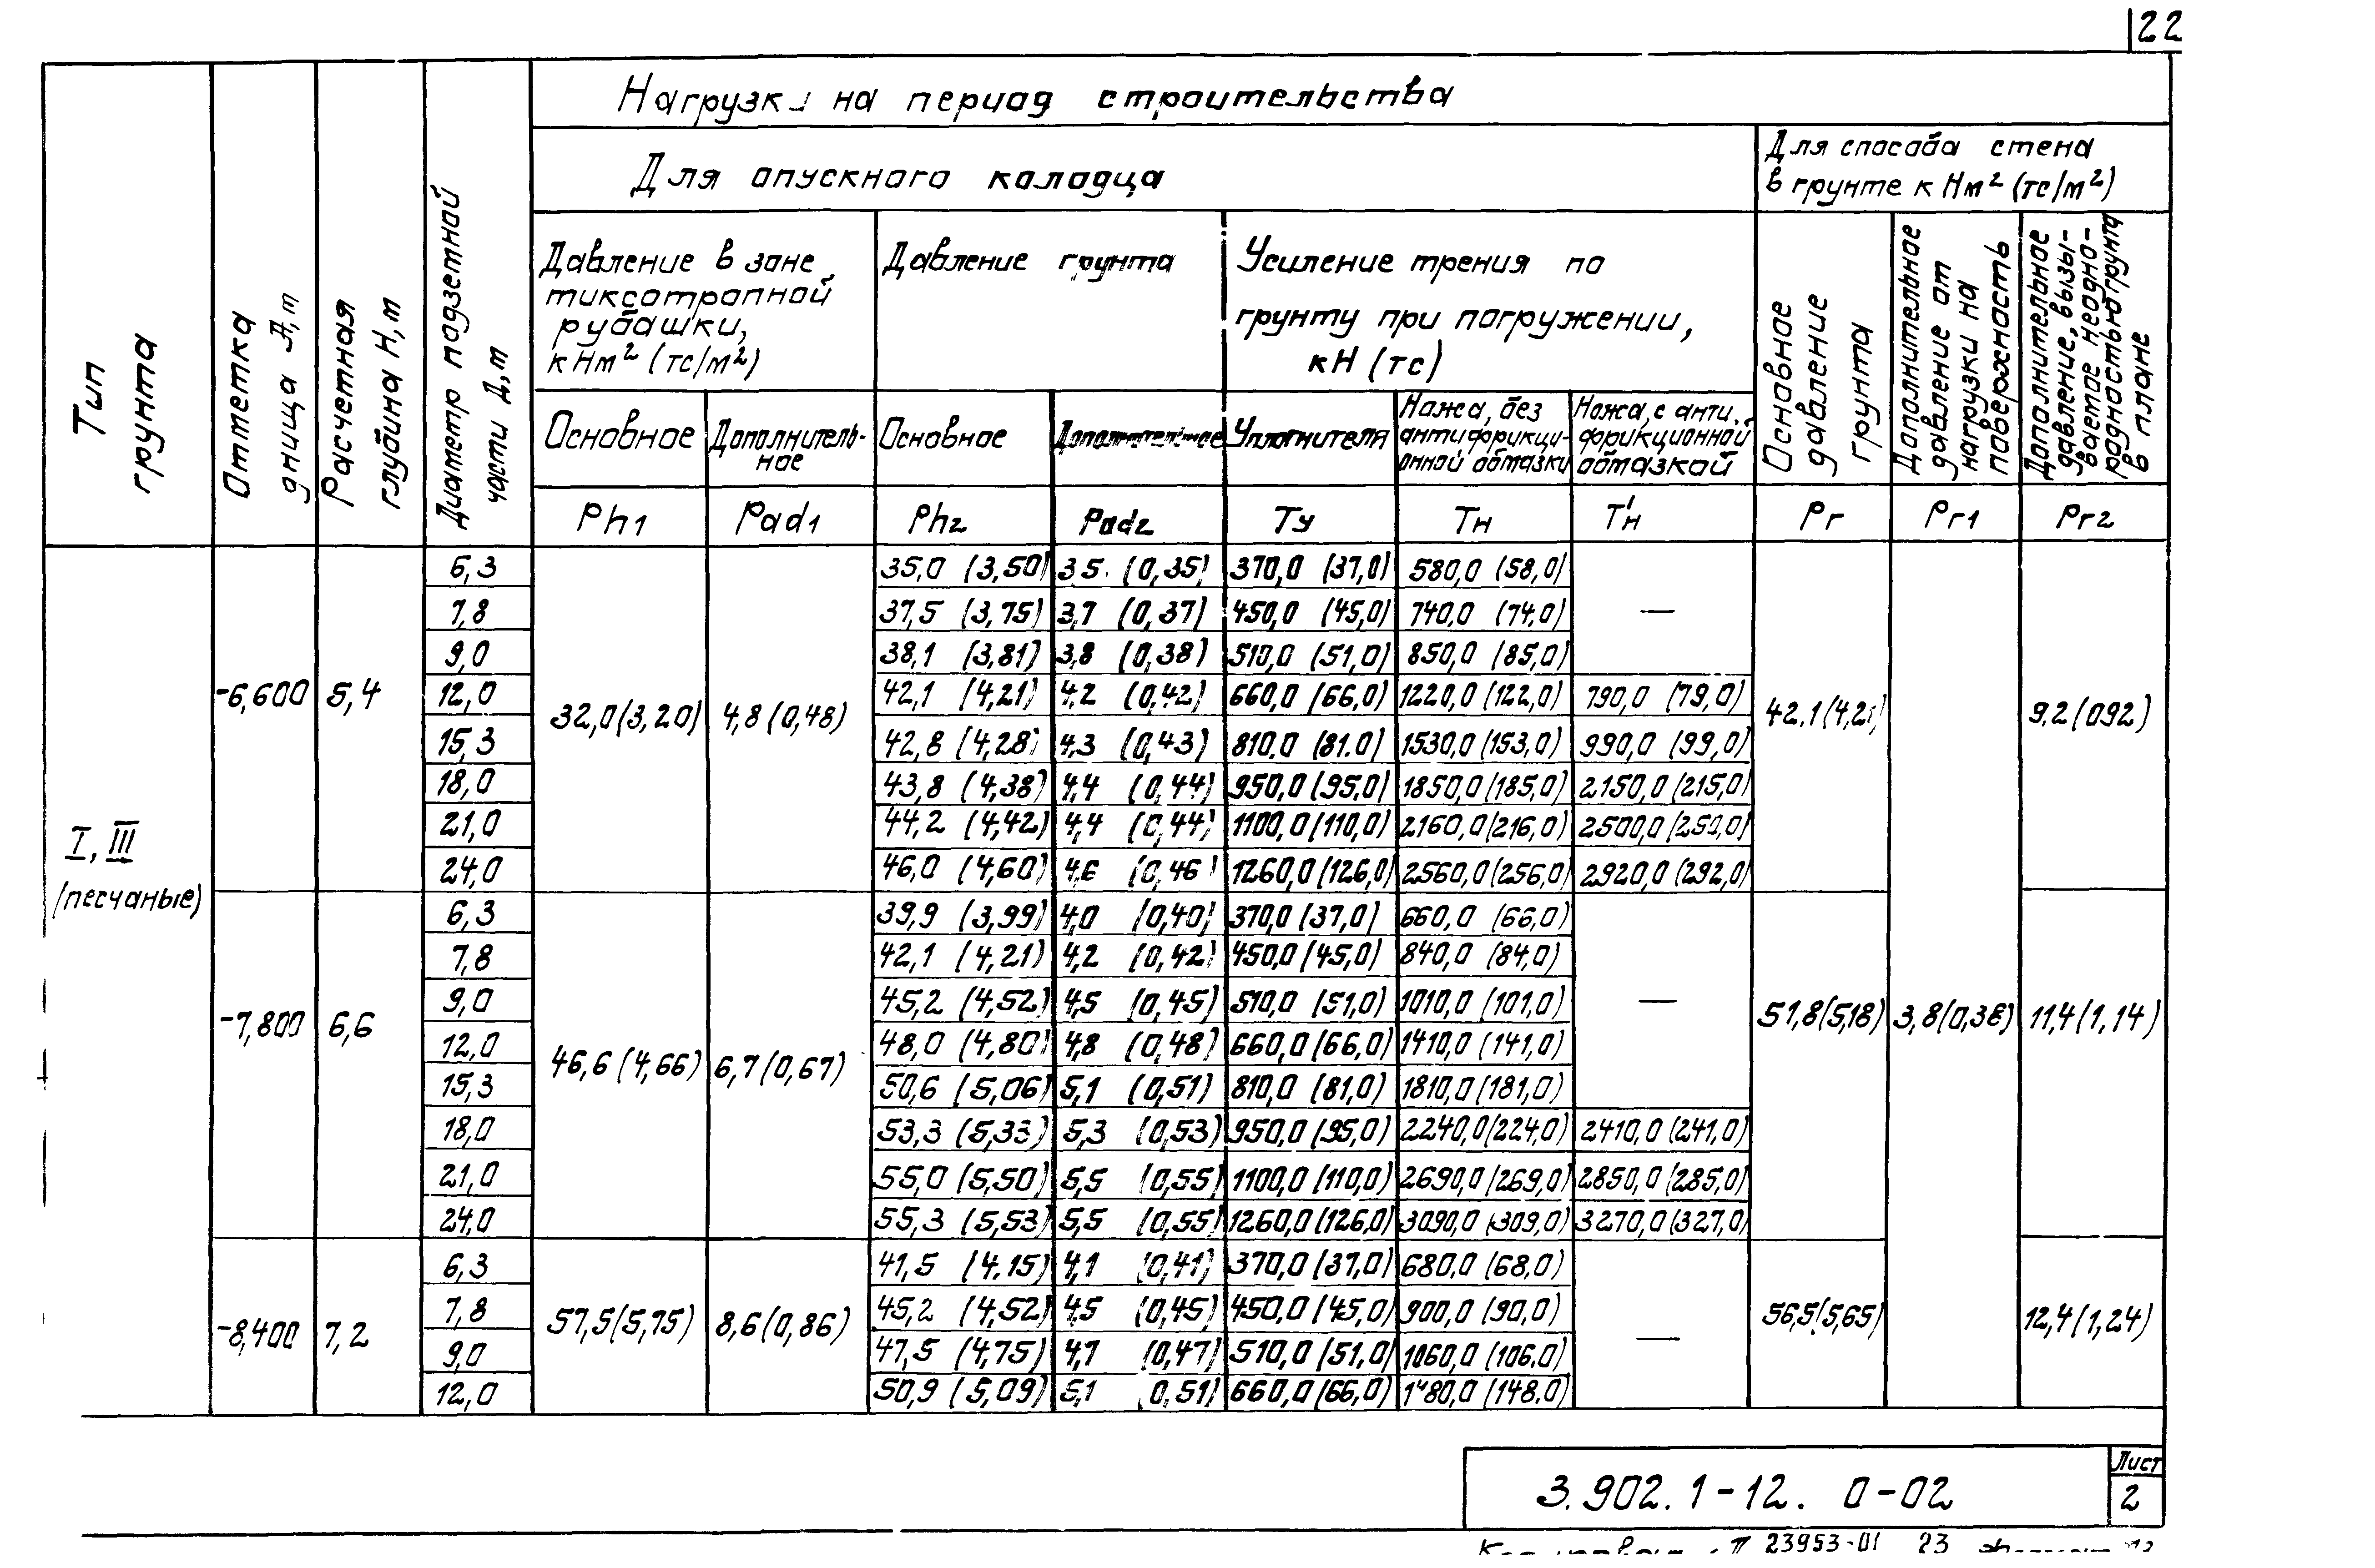 22
Нагрузки на период строительства
Для опускного колодца
Для способа стена
в грунте кНм² (тс/м²)
Тип
грунта
Отметка
днища А, м
Расчетная
глубина Н, м
Диаметр подземной
части Д, м
Давление в зоне
тиксотропной
рубашки,
кНм² (тс/м²)
Давление грунта
Усиление трения по
грунту при погружении,
кН (тс)
Основное
давление
грунта
Дополнительное
давление от
нагрузки на
поверхность
Дополнительное
давление, вызы-
ваемое неодно-
родностью грунта
в плане
Основное
Дополнитель-
ное
Основное
Дополнительное
Уплотнителя
Ножа, без
антифрикци-
онной обмазки
Ножа, с анти-
фрикционной
обмазкой
Ph1 Pad1 Ph2 Pad2 Ту Тн Т'н Pr Pr1 Pr2
I, III
(песчаные)
-6,600 5,4 32,0(3,20) 4,8(0,48) 42,1(4,21) 9,2(092)
6,3 35,0 (3,50) 3,5 (0,35) 370,0 (37,0) 580,0 (58,0)
7,8 37,5 (3,75) 3,7 (0,37) 450,0 (45,0) 740,0 (74,0) —
9,0 38,1 (3,81) 3,8 (0,38) 510,0 (51,0) 850,0 (85,0)
12,0 42,1 (4,21) 4,2 (0,42) 660,0 (66,0) 1220,0 (122,0) 790,0 (79,0)
15,3 42,8 (4,28) 4,3 (0,43) 810,0 (81.0) 1530,0 (153,0) 990,0 (99,0)
18,0 43,8 (4,38) 4,4 (0,44) 950,0 (95,0) 1850,0 (185,0) 2150,0 (215,0)
21,0 44,2 (4,42) 4,4 (0,44) 1100,0 (110,0) 2160,0 (216,0) 2500,0 (250,0)
24,0 46,0 (4,60) 4,6 (0,46) 1260,0 (126,0) 2560,0 (256,0) 2920,0 (292,0)
-7,800 6,6 46,6 (4,66) 6,7(0,67) 51,8(5,18) 3,8(0,38) 11,4(1,14)
6,3 39,9 (3,99) 4,0 (0,40) 370,0 (37,0) 660,0 (66,0)
7,8 42,1 (4,21) 4,2 (0,42) 450,0 (45,0) 840,0 (84,0)
9,0 45,2 (4,52) 4,5 (0,45) 510,0 (51,0) 1010,0 (101,0) —
12,0 48,0 (4,80) 4,8 (0,48) 660,0 (66,0) 1410,0 (141,0)
15,3 50,6 (5,06) 5,1 (0,51) 810,0 (81,0) 1810,0 (181,0)
18,0 53,3 (5,33) 5,3 (0,53) 950,0 (95,0) 2240,0 (224,0) 2410,0 (241,0)
21,0 55,0 (5,50) 5,5 (0,55) 1100,0 (110,0) 2690,0 (269,0) 2850,0 (285,0)
24,0 55,3 (5,53) 5,5 (0,55) 1260,0 (126,0) 3090,0 (309,0) 3270,0 (327,0)
-8,400 7,2 57,5(5,75) 8,6(0,86) 56,5(5,65) 12,4(1,24)
6,3 41,5 (4,15) 4,1 (0,41) 370,0 (37,0) 680,0 (68,0)
7,8 45,2 (4,52) 4,5 (0,45) 450,0 (45,0) 900,0 (90,0)
9,0 47,5 (4,75) 4,7 (0,47) 510,0 (51,0) 1060,0 (106.0) —
12,0 50,9 (5,09) 5,1 (0,51) 660,0 (66,0) 1480,0 (148.0)
3.902.1-12. 0-02
Лист
2
23953-01 23